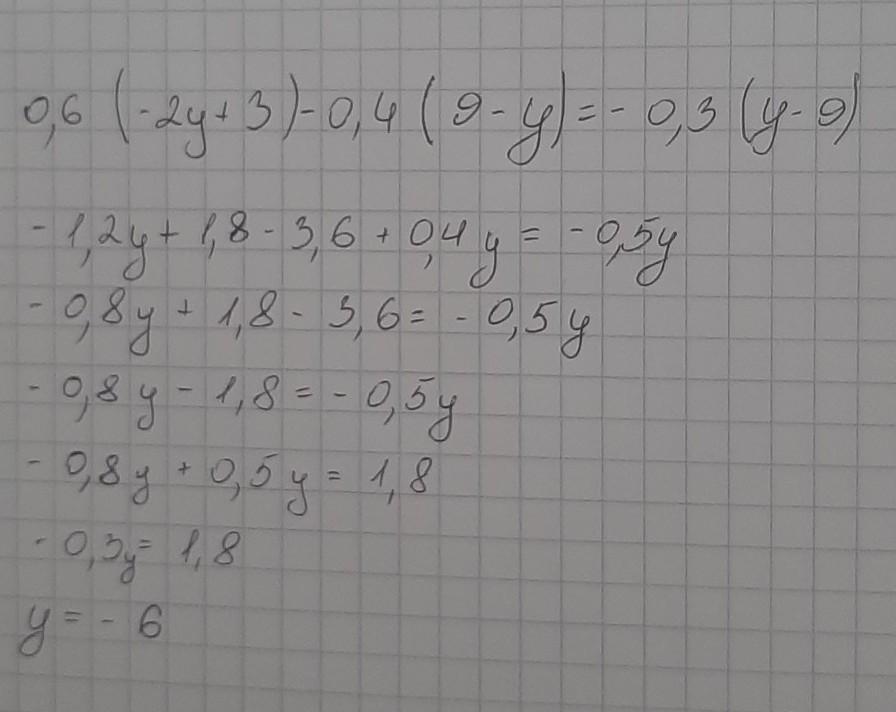 0,6 (-2y+3)-0,4(9-y)=-0,3(y-9)
-1,2y+1,8-3,6+0,4y=-0,5y
-0,8y+1,8-3,6=-0,5y
-0,8y-1,8=-0,5y
-0,8y+0,5y=1,8
-0,3y=1,8
y=-6